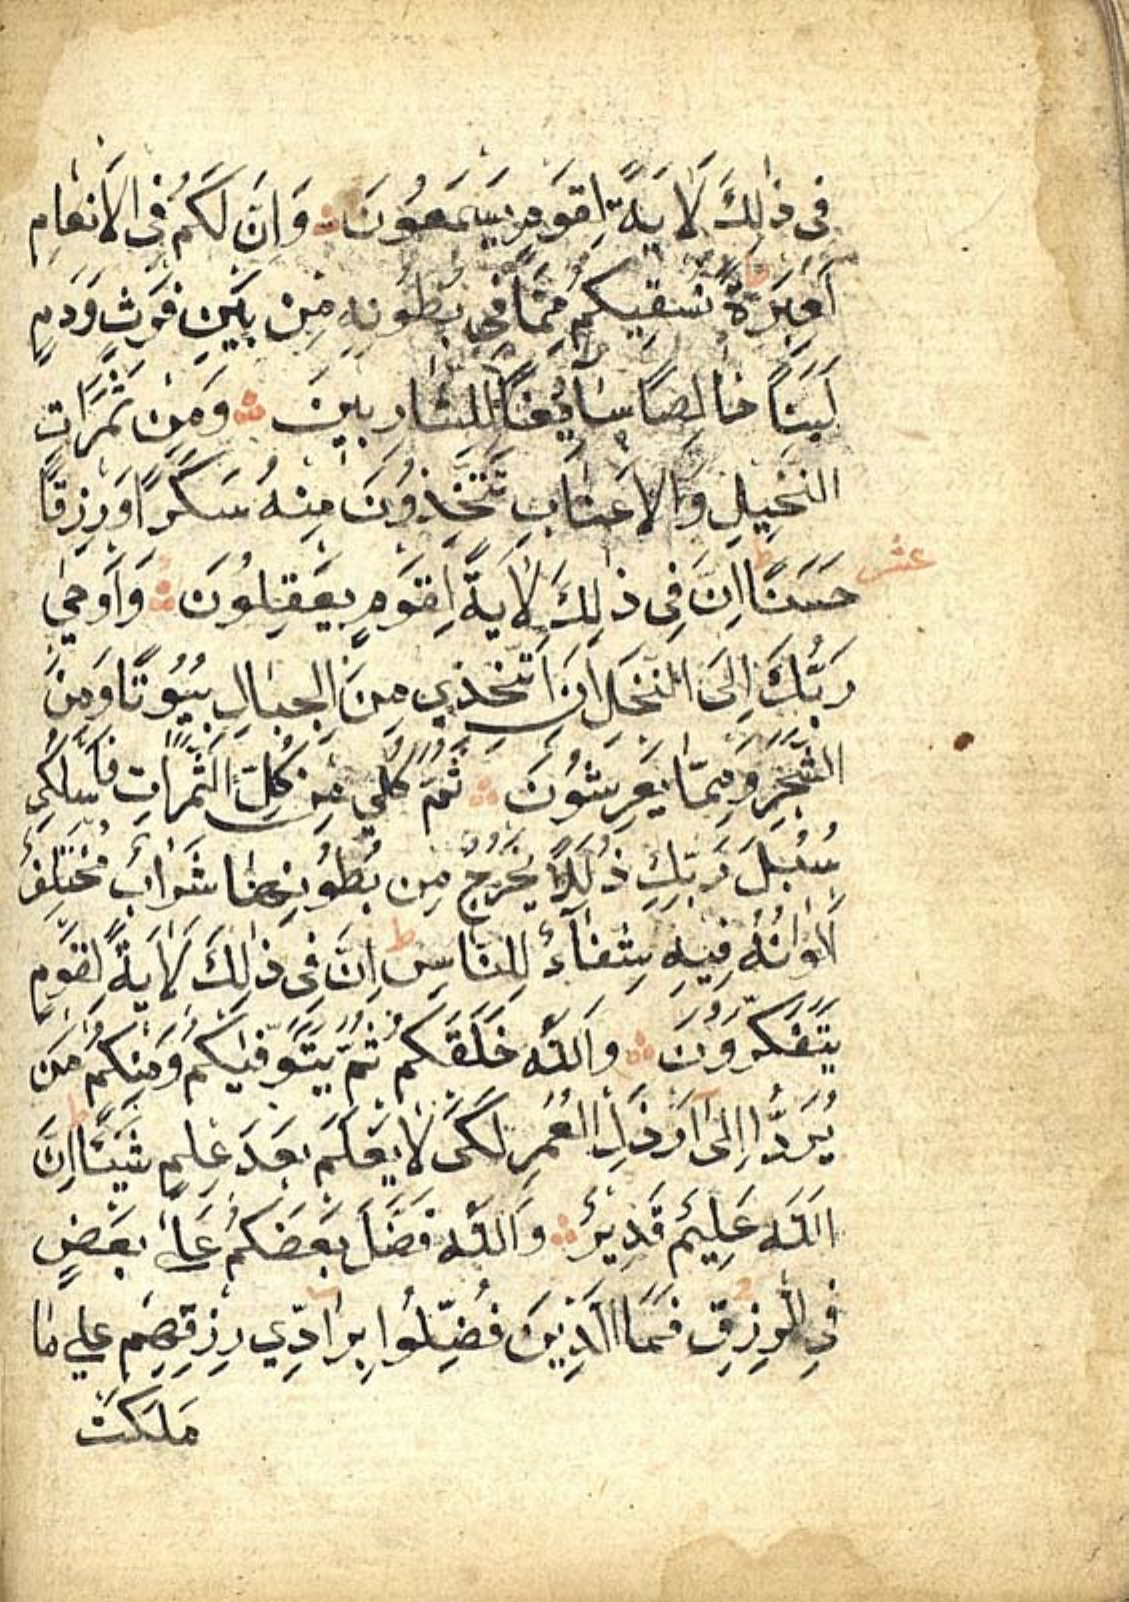 فِي ذٰلِكَ لَاٰيَةً لِقَوْمٍ يَسْمَعُونَ وَاِنَّ لَكُمْ فِي الْاَنْعَامِ
لَعِبْرَةً نُسْقِيكُمْ مِمَّا فِي بُطُونِهِ مِنْ بَيْنِ فَرْثٍ وَدَمٍ
لَبَنًا خَالِصًا سَآئِغًا لِلشَّارِبِينَ وَمِنْ ثَمَرَاتِ
النَّخِيلِ وَالْاَعْنَابِ تَتَّخِذُونَ مِنْهُ سَكَرًا وَرِزْقًا
عشر حَسَنًا ط اِنَّ فِي ذٰلِكَ لَاٰيَةً لِقَوْمٍ يَعْقِلُونَ وَاَوْحٰي
رَبُّكَ اِلَى النَّحْلِ اَنِ اتَّخِذِي مِنَ الْجِبَالِ بُيُوتًا وَمِنَ
الشَّجَرِ وَمِمَّا يَعْرِشُونَ ثُمَّ كُلِي مِنْ كُلِّ الثَّمَرَاتِ فَاسْلُكِي
سُبُلَ رَبِّكِ ذُلُلًا يَخْرُجُ مِنْ بُطُونِهَا شَرَابٌ مُخْتَلِفٌ
اَلْوَانُهُ فِيهِ شِفَآءٌ لِلنَّاسِ ط اِنَّ فِي ذٰلِكَ لَاٰيَةً لِقَوْمٍ
يَتَفَكَّرُونَ وَاللّٰهُ خَلَقَكُمْ ثُمَّ يَتَوَفّٰيكُمْ وَمِنْكُمْ مَنْ
يُرَدُّ اِلٰٓى اَرْذَلِ الْعُمُرِ لِكَيْ لَا يَعْلَمَ بَعْدَ عِلْمٍ شَيْئًا ط اِنَّ
اللّٰهَ عَلِيمٌ قَدِيرٌ وَاللّٰهُ فَضَّلَ بَعْضَكُمْ عَلٰى بَعْضٍ
فِي الرِّزْقِ فَمَا الَّذِينَ فُضِّلُوا بِرَادِّي رِزْقِهِمْ عَلٰي مَا
مَلَكَتْ